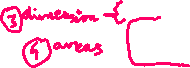 3 dimension {
4 areas